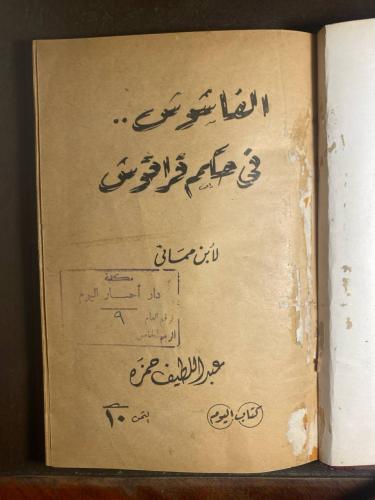 الفاشوش..
في حكم قراقوش
لابن مماتي
مكتبة
دار أخبار اليوم
رقم العام
٩
عبد اللطيف حمزه
كتاب اليوم
الثمن ١٠